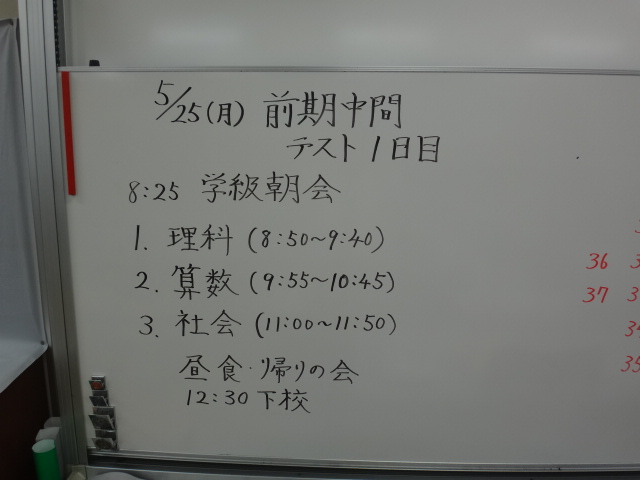 5/25(月) 前期中間
テスト1日目
8:25 学級朝会
1. 理科 (8:50~9:40)
2. 算数 (9:55~10:45)
3. 社会 (11:00~11:50)
昼食・帰りの会
12:30 下校
36
37